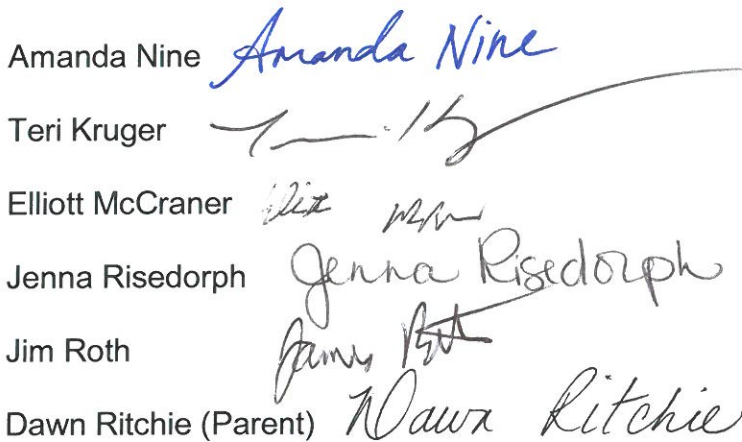 Amanda Nine Amanda Nine
Teri Kruger
Elliott McCraner
Jenna Risedorph Jenna Risedorph
Jim Roth James Roth
Dawn Ritchie (Parent) Dawn Ritchie